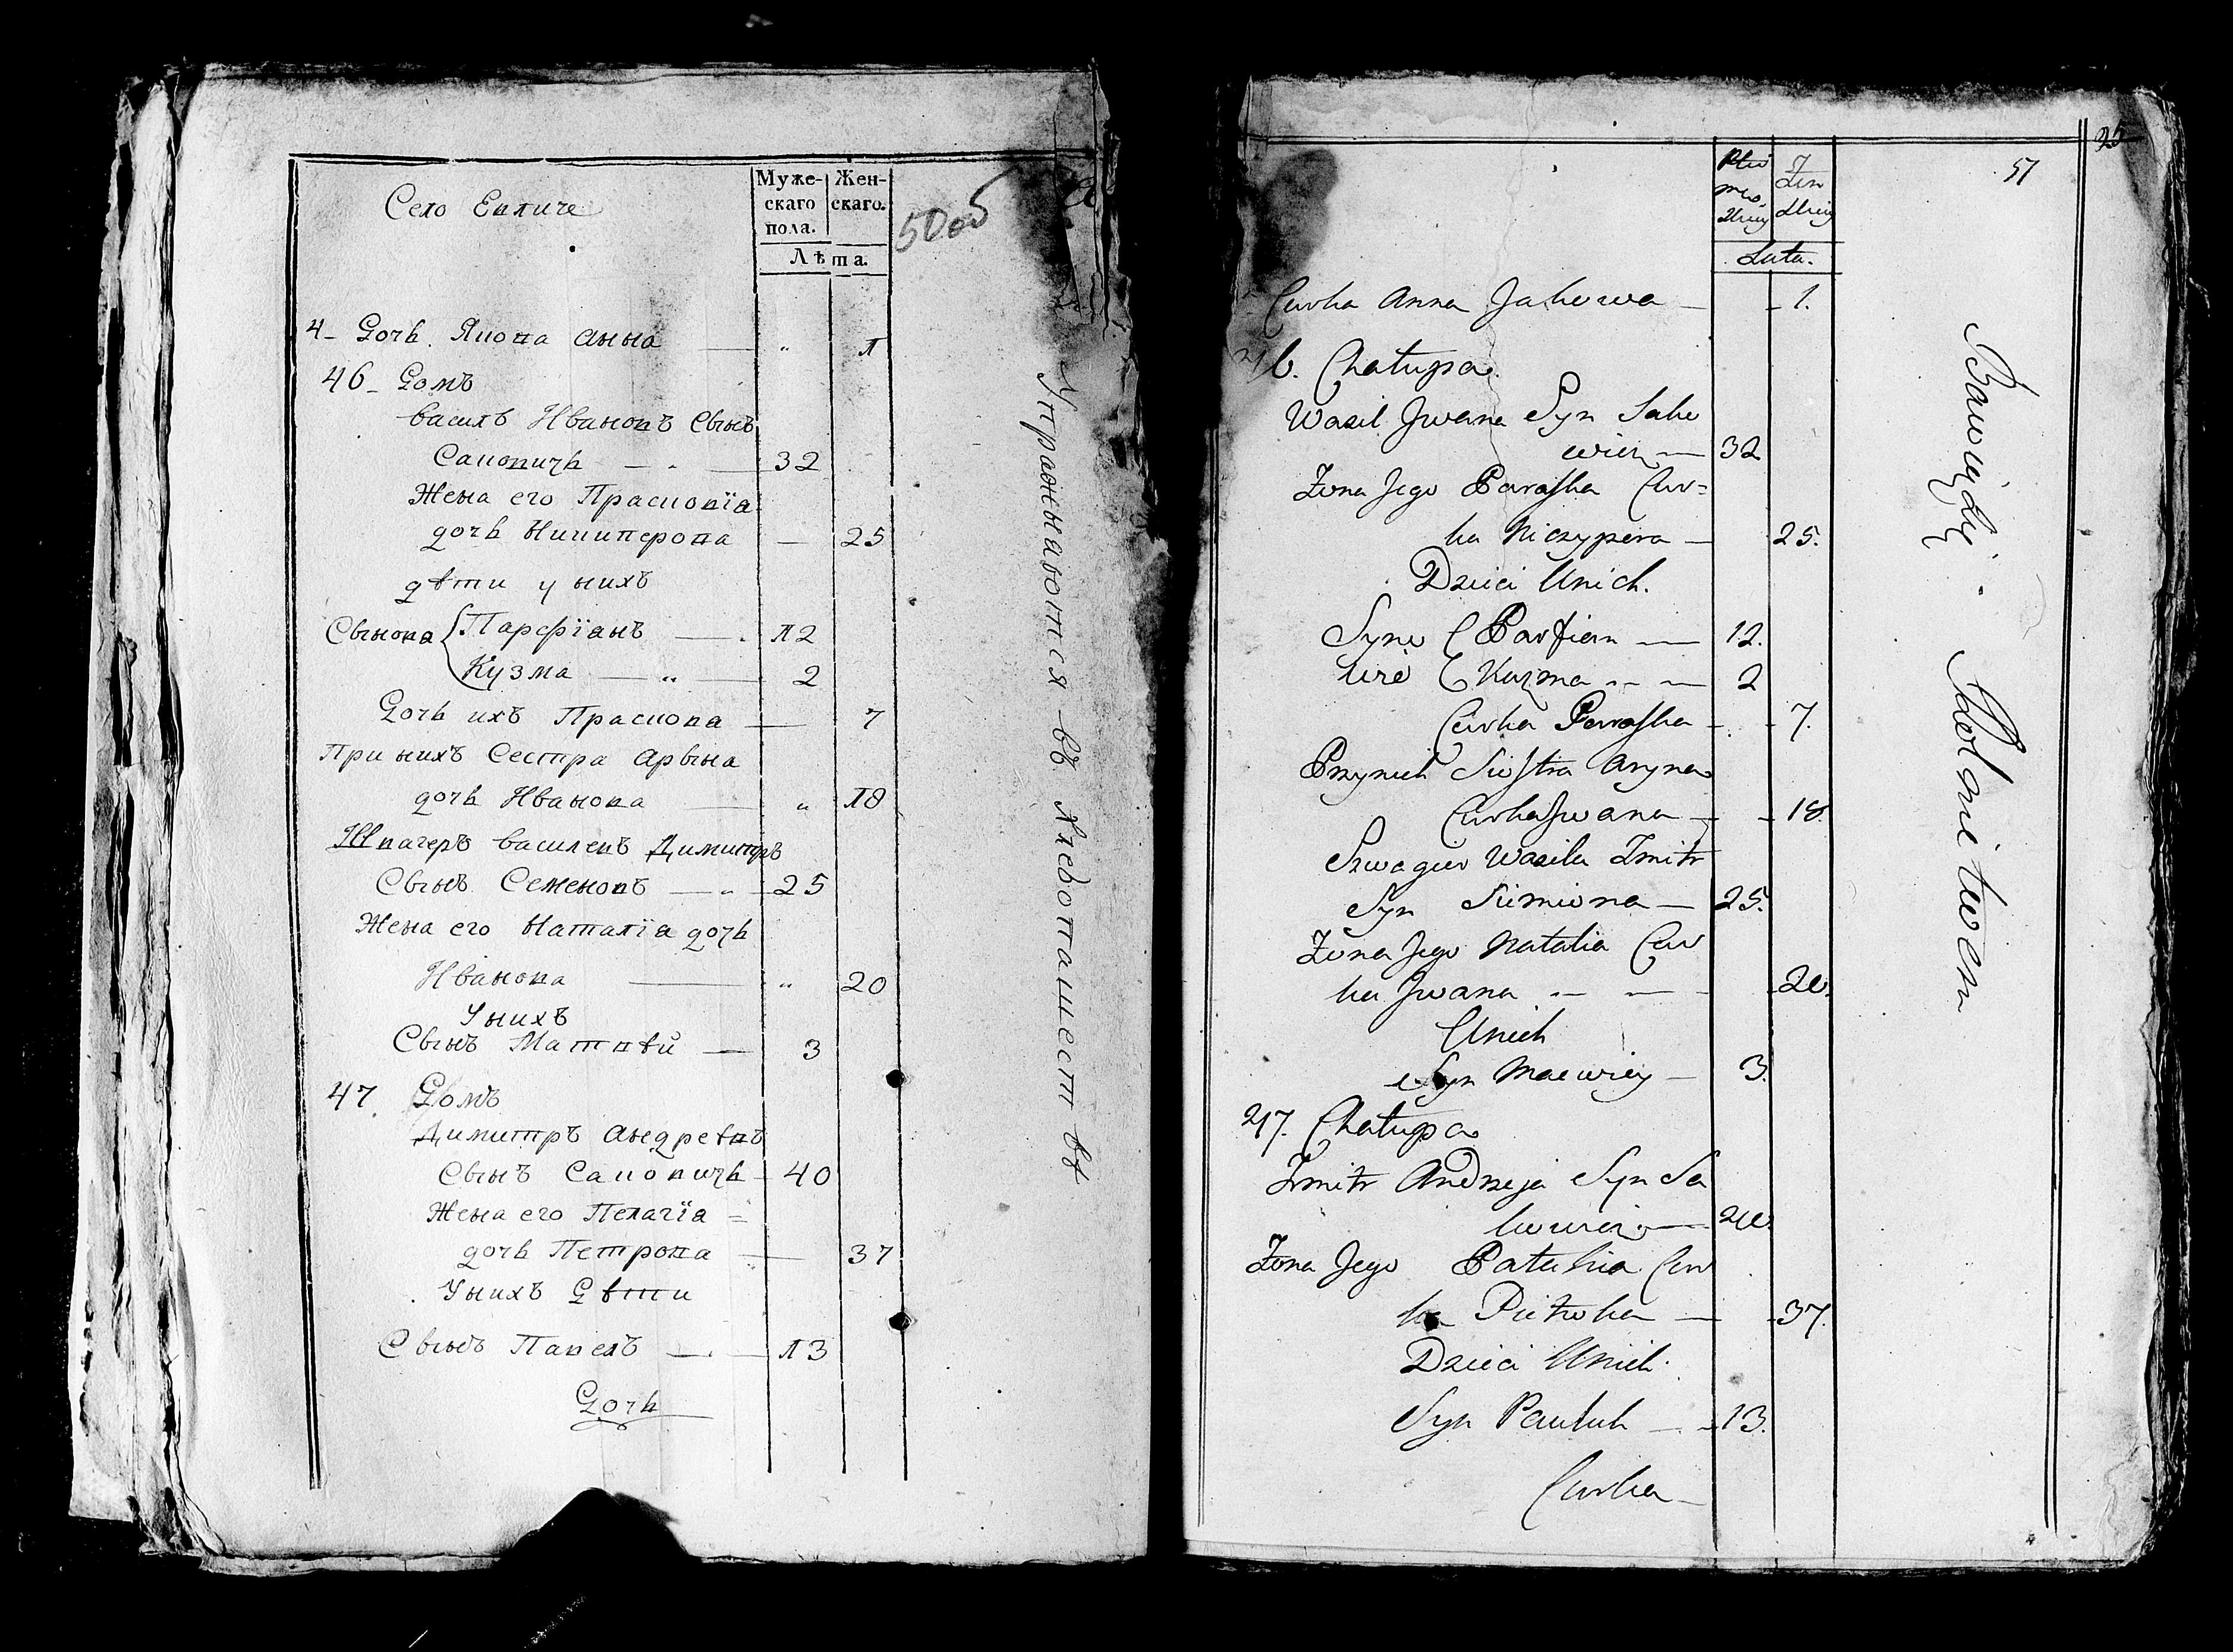 Село Евличе
Муже-
скаго
пола.
Жен-
скаго.
Лѣта.
50об
4 - Дочь Якова Анна — " 1
46 - Домъ
Василь Ивановъ Сынъ
Саковичь — 32
Жена его Прасковїа
дочь Ничиперова — 25
дѣти у нихъ
Сынова { Парфїанъ — 12
Кузма — " — 2
Дочь ихъ Праскова — 7
При нихъ Сестра Арына
дочь Иванова — " 18
Швагеръ Василевъ Димитръ
Сынъ Семеновъ — " — 25
Жена его Наталїа дочь
Иванова — " 20
У нихъ
Сынъ Матвѣй — 3
47. Домъ
Димитръ Андреевъ
Сынъ Саковичь — 40
Жена его Пелагїа =
дочь Петрова — 37
У нихъ Дѣти
Сынъ Павелъ — 13
Дочь
Упражняются въ хлебопашествѣ
95
51
Płci
Lata.
Curka Anna Jakowa — 1.
46. Chałupa.
Wasil Jwana Syn Sako
wicz — 32
Żona Jego Paraska Cur=
ka Niczypera — 25.
Dzieci Unich.
Syno { Parfien — 12.
wie { Kuzma — — 2
Curka Paraska — 7.
Przynich Siostra Aryna
Curka Jwana — 18
Szwagier Wasila Zmitr
Syn Siemiona — 25.
Żona Jego Natalia Cur
ka Jwana — — 20.
Unich
Syn Maćwiey — 3.
47. Chałupa
Zmitr Andrzeja Syn Sa
kowicz — 40.
Żona Jego Pałahia Cur
ka Pietroka — 37.
Dzieci Unich.
Syn Pawluk — 13.
Curka —
Bawią się Rolnictwem